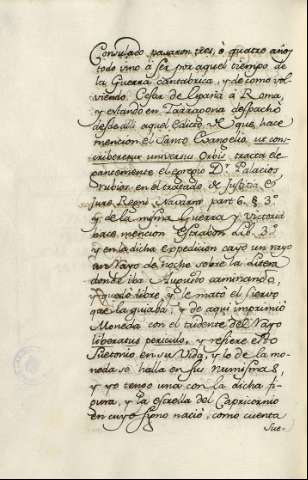 Consulado pasaron tres, o quatro años
todo vino à ser por aquel tiempo de
la Guerra cantabrica, y de como vol-
viendo Cesar de España à Roma,
y estando en Tarragona despachò
desde alli aquel edicto de que hace
mencion el Santo Evangelio ut cons-
criberetur universus Orbis tracta ele-
gantemente el egregio D.r Palacios
rubios, en el tratado de Justitia, &
Jure, Regni Navarræ part. 6. § 3.º
y de la misma Guerra y Victoria
hace mencion Estrabon lib. 3.º
y en la dicha expedicion cayo un rayo
un Rayo de noche sobre la litera
donde iba Augusto caminando,
y quedò libre, y le matò el siervo
que la guiaba, y de aqui imprimiò
Moneda con el tridente del Rayo
liberatus periculo, y refiere esto
Suetonio en su Vida, y lo de la mo-
neda se halla en sus numismas,
y yo tengo una con la dicha fi-
gura, y la estrella del Capricornio
en cuyo signo nació, como cuenta
Sue-